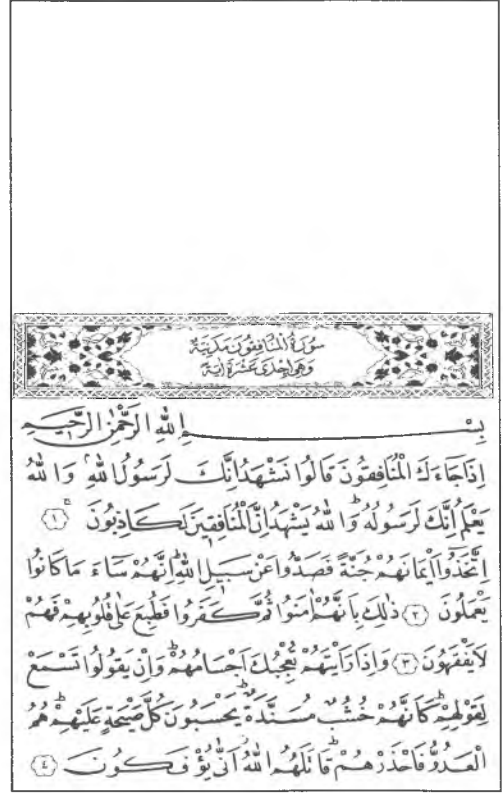 سُورَةُ الْمُنَافِقُونَ مَدَنِيَّةٌ
وَهِيَ اِحْدٰى عَشَرَةَ اٰيَةً
بِسْمِ اللّٰهِ الرَّحْمٰنِ الرَّحٖيمِ
اِذَا جَاءَكَ الْمُنَافِقُونَ قَالُوا نَشْهَدُ اِنَّكَ لَرَسُولُ اللّٰهِۘ وَاللّٰهُ
يَعْلَمُ اِنَّكَ لَرَسُولُهُۜ وَاللّٰهُ يَشْهَدُ اِنَّ الْمُنَافِقٖينَ لَكَاذِبُونَۚ ﴿١﴾
اِتَّخَذُٓوا اَيْمَانَهُمْ جُنَّةً فَصَدُّوا عَنْ سَبٖيلِ اللّٰهِۜ اِنَّهُمْ سَٓاءَ مَا كَانُوا
يَعْمَلُونَ ﴿٢﴾ ذٰلِكَ بِاَنَّهُمْ اٰمَنُوا ثُمَّ كَفَرُوا فَطُبِعَ عَلٰى قُلُوبِهِمْ فَهُمْ
لَا يَفْقَهُونَ ﴿٣﴾ وَاِذَا رَاَيْتَهُمْ تُعْجِبُكَ اَجْسَامُهُمْۜ وَاِنْ يَقُولُوا تَسْمَعْ
لِقَوْلِهِمْۜ كَاَنَّهُمْ خُشُبٌ مُسَنَّدَةٌۜ يَحْسَبُونَ كُلَّ صَيْحَةٍ عَلَيْهِمْۜ هُمُ
الْعَدُوُّ فَاحْذَرْهُمْۜ قَاتَلَهُمُ اللّٰهُۘ اَنّٰى يُؤْفَكُونَ ﴿٤﴾